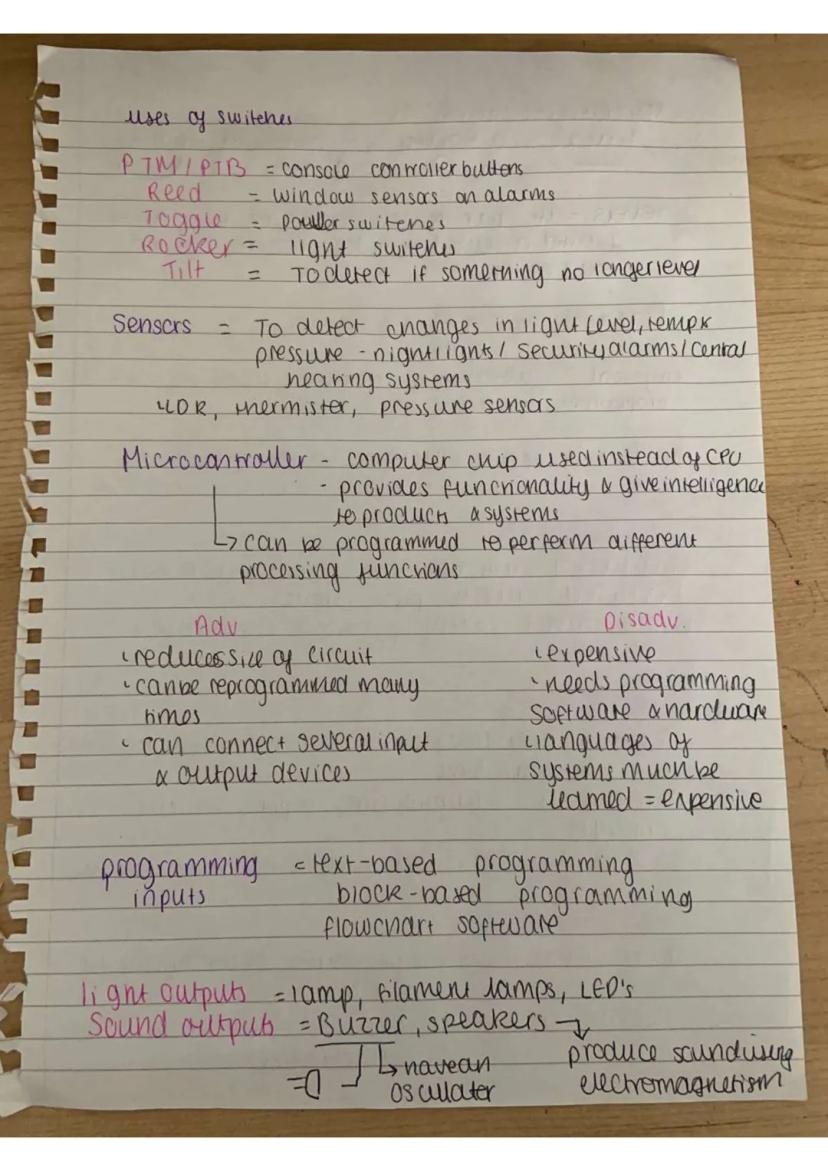 uses of switches
PTM/PTB = console controller buttons
Reed = window sensors on alarms
Toggle = power switches
Rocker = light switches
Tilt = To detect if something no longer level
Sensors = To detect changes in light level, temp &
pressure - nightlights/ security alarms/ central
heating systems
LDR, thermister, pressure sensors
Microcontroller - computer chip used instead of CPU
- provides functionality & give intelligence
to products & systems
↳ can be programmed to perform different
processing functions
Adv
reduces size of circuit
can be reprogrammed many
times
can connect several input
& output devices
Disadv.
expensive
needs programming
software & hardware
languages of
systems much be
learned = expensive
programming = text-based programming
inputs block-based programming
flowchart software
light outputs = lamp, filament lamps, LED's
Sound outputs = Buzzer, speakers →
↳ have an
oscillater
produce sound using
electromagnetism